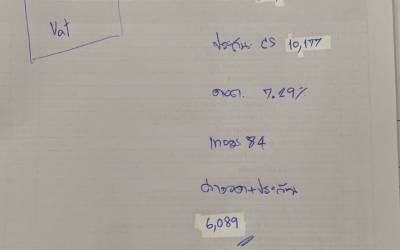 Vat
ประกัน CS 10,177
ดอก. 7.29%
เทอม 84
ค่างวด+ประกัน
6,089